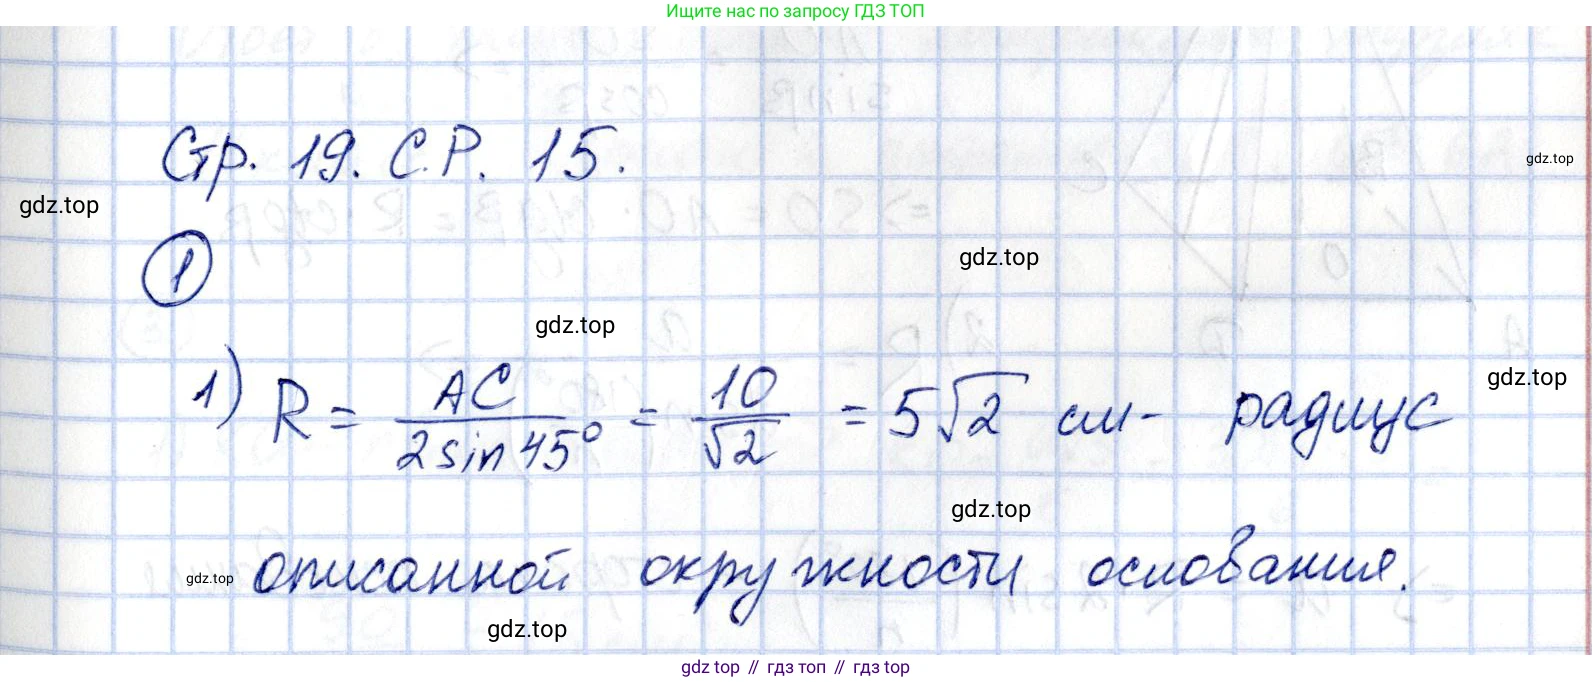 Ищите нас по запросу ГДЗ ТОП
Стр. 19. С.Р. 15.
gdz.top
gdz.top
1
gdz.top
gdz.top
gdz.top
1) R = AC / 2 sin 45° = 10 / √2 = 5√2 см - радиус
gdz.top
gdz.top
описанной окружности основания.
gdz.top
gdz.top // гдз топ // гдз top